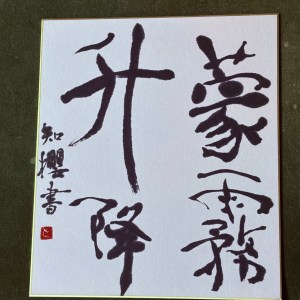 蒙霧
升降
知櫻書